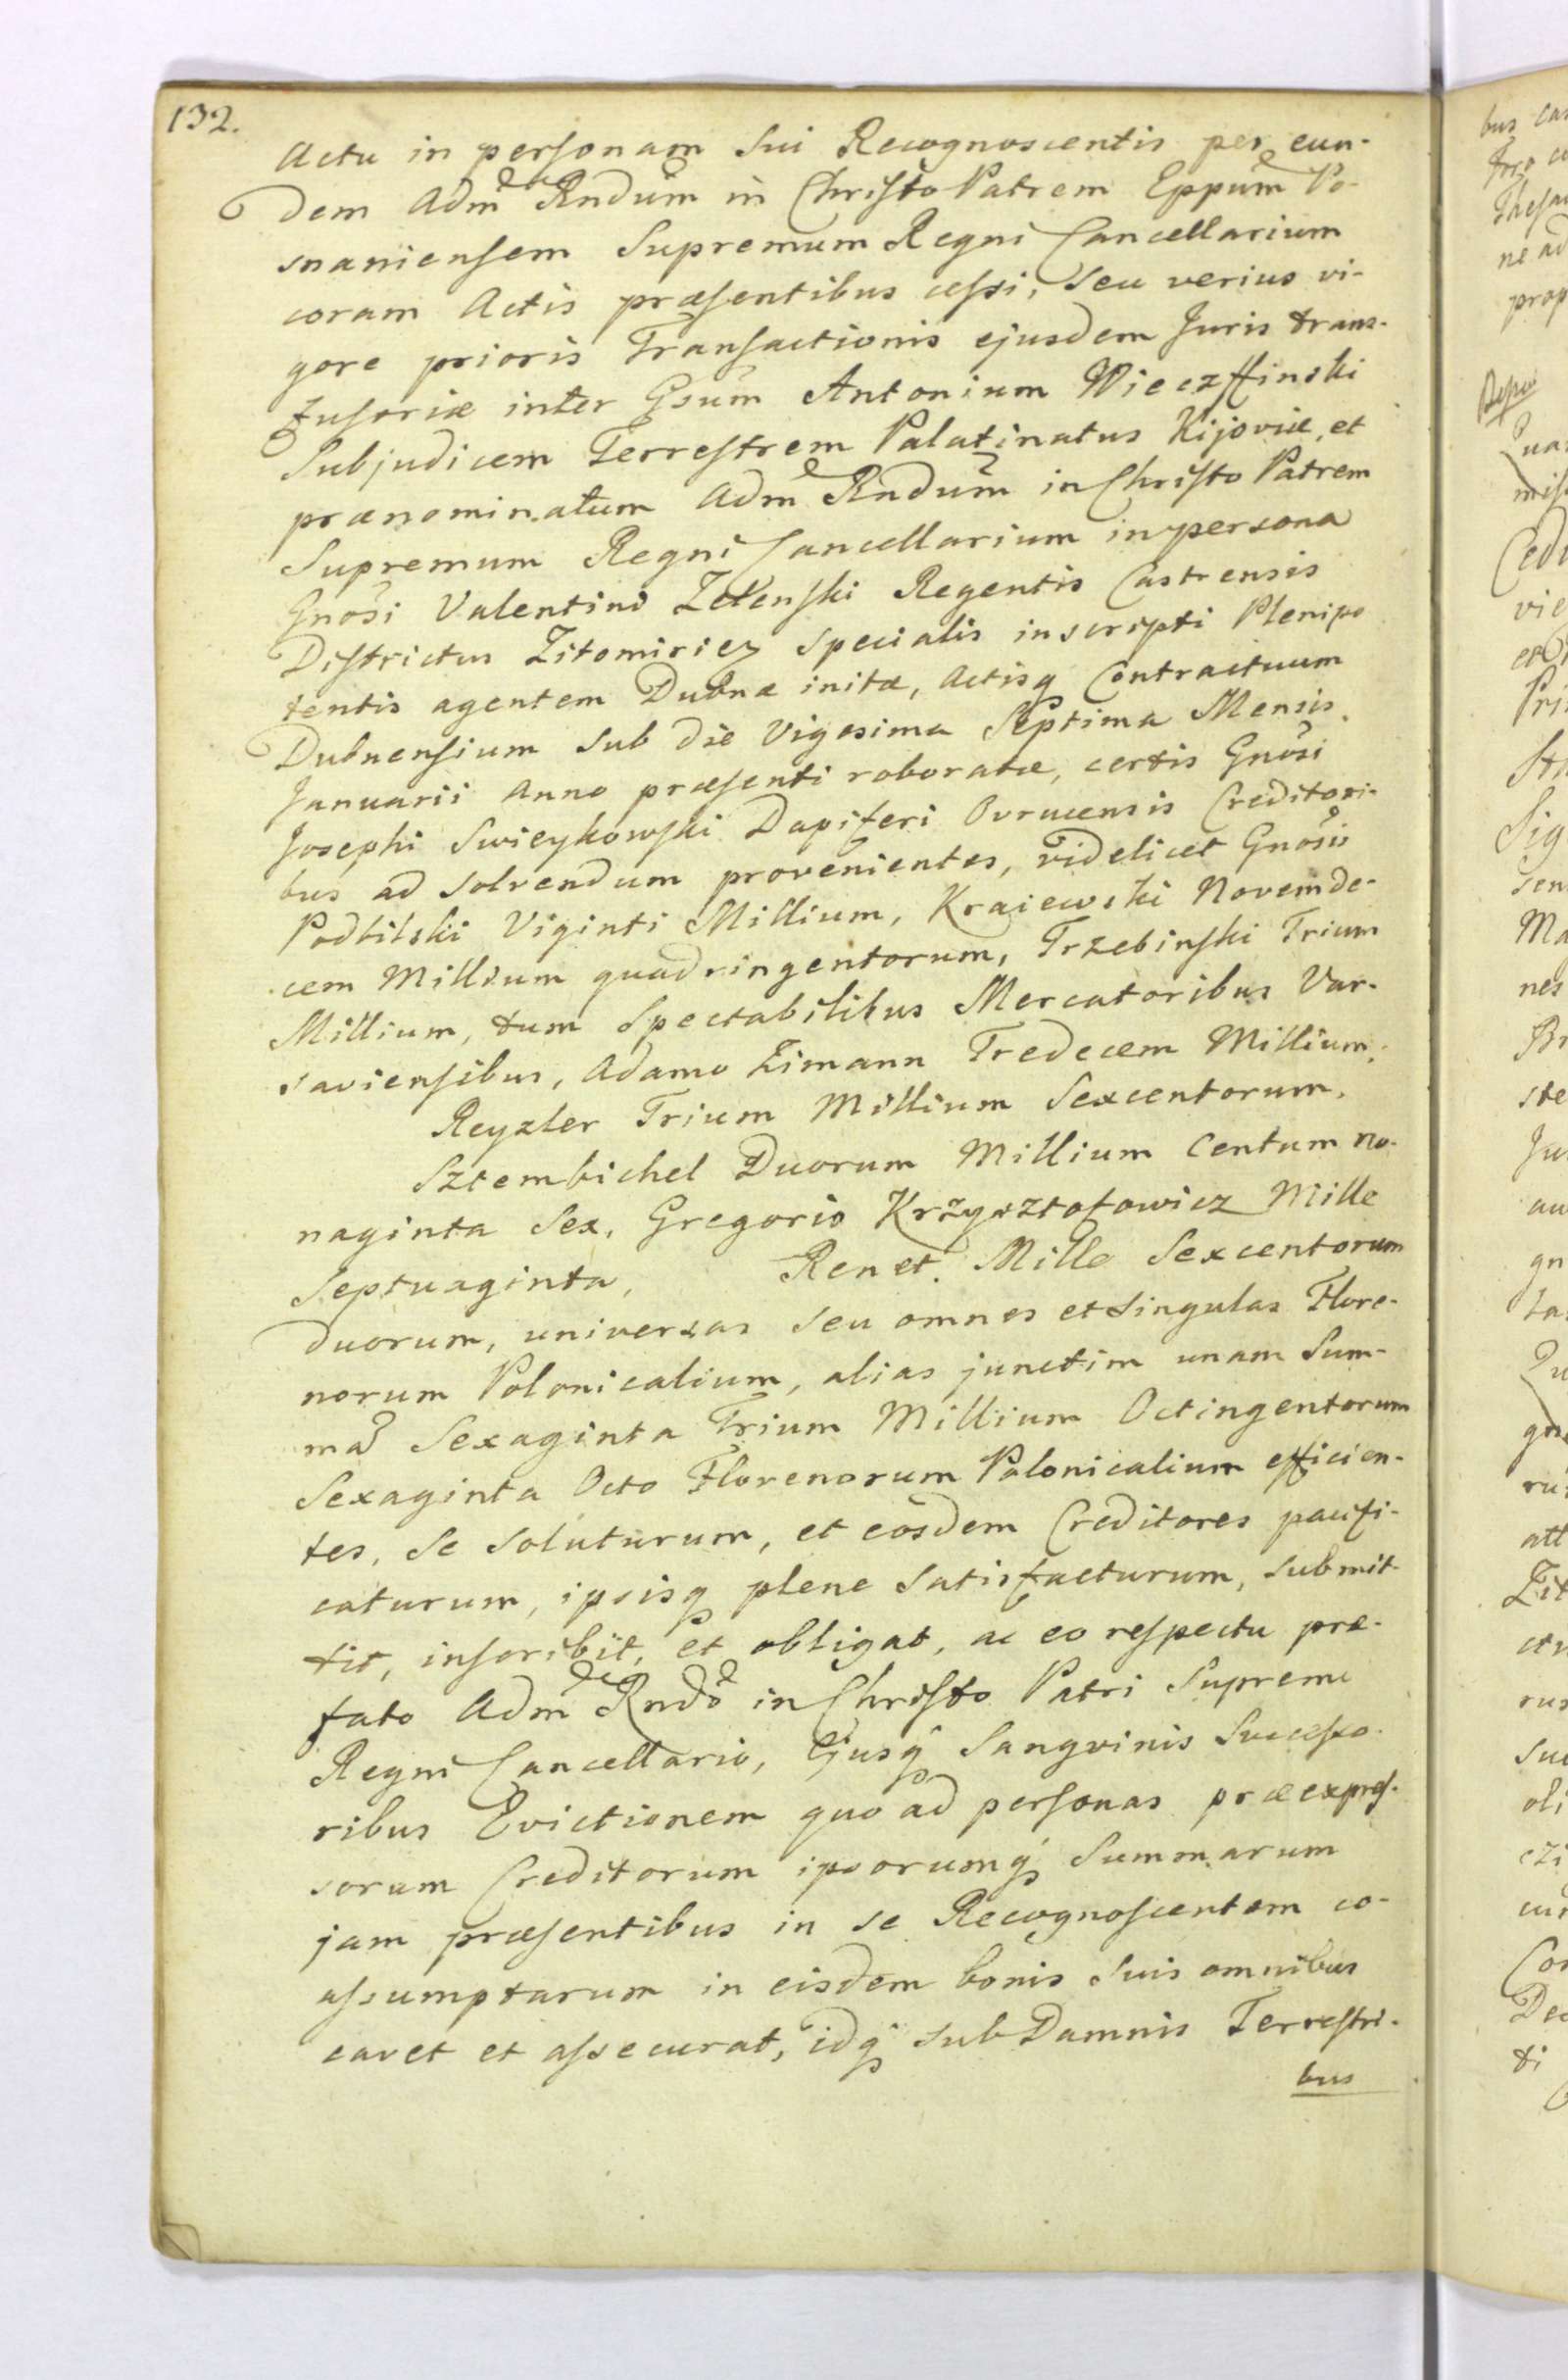 132.
Actu in personam Sui Recognoscentis per eun-
dem Adm Rndum in Christo Patrem Eppum Po-
snaniensem Supremum Regni Cancellarium
coram Actis præsentibus cessi, seu verius vi-
gore prioris Transactionis ejusdem Juris trans-
fusoriæ inter Gsum Antonium Wieczffinski
Subjudicem Terrestrem Palatinatus Kijoviæ, et
prænominatum Adm Rndum in Christo Patrem
Supremum Regni Cancellarium in persona
Gnosi Valentini Zelenski Regentis Castrensis
Districtus Zitomiriez specialis inscripti Plenipo
tentis agentem Dubnæ initæ, Actisq Contractuum
Dubnensium sub die Vigesima Septima Mensis
Januarii Anno præsenti roboratæ, certis Gnosi
Josephi Swieykowski Dapiferi Ovrucensis Creditori-
bus ad solvendum provenientes, videlicet Gnosis
Podbilski Viginti Millium, Kraiewski Novemde-
cem Millium quadringentorum, Trzebinski Trium
Millium, tum Spectabilibus Mercatoribus Var-
saviensibus, Adamo Zimann Tredecem Millium,
Reyzler Trium Millium Sexcentorum,
Sztembichel Duorum Millium Centum no-
naginta Sex, Gregorio Krzysztofowicz Mille
Septuaginta, Renet. Mille Sexcentorum
duorum, universas seu omnes et singulas Flore-
norum Polonicalium, alias junctim unam Sum-
mã Sexaginta Trium Millium Octingentorum
Sexaginta Octo Florenorum Polonicalium efficien-
tes, se soluturum, et eosdem Creditores pacifi-
caturum, ipsisq plene satisfacturum, submit-
tit, inscribit, et obligat, ac eo respectu præ-
fato Adm Rndo in Christo Patri Supremo
Regni Cancellario, Ejusq Sangvinis Successo-
ribus Evictionem quo ad personas præexpres-
sorum Creditorum ipsorumq Summarum
jam præsentibus in se Recognoscentem co-
assumptarum in eisdem bonis suis omnibus
cavet et assecurat, idq sub Damnis Terrestri-
bus